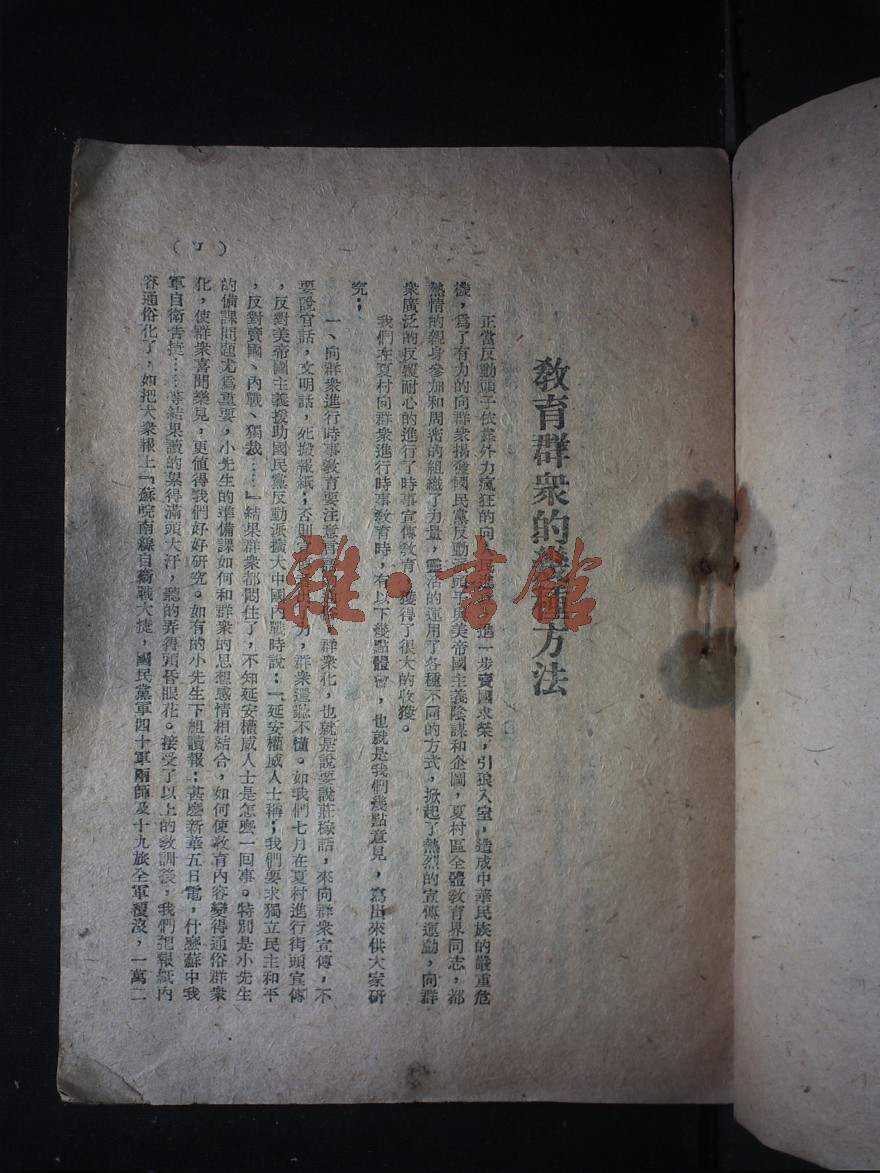 教育群衆的幾種方法
正當反動頭子依靠外力瘋狂的向人民進，進一步賣國求榮，引狼入室，造成中華民族的嚴重危
機，爲了有力的向群衆揭發國民黨反動頭子與美帝國主義陰謀和企圖，夏村區全體教育界同志，都
熱情的親身參加和周密的組織了力量，靈活的運用了各種不同的方式，掀起了熱烈的宣傳運動，向群
衆廣泛的反複耐心的進行了時事宣傳教育，獲得了很大的收獲。
我們在夏村向群衆進行時事教育時，有以下幾點體會，也就是我們幾點意見，寫出來供大家研
究；
一、向群衆進行時事教育要注意言語，群衆化，也就是說要說莊稼話，來向群衆宣傳，不
要說官話，文明話，死搬報紙；否則力，群衆還聽不懂。如我們七月在夏村進行街頭宣傳
，反對美帝國主義援助國民黨反動派擴大中國內戰時說：「延安權威人士稱；我們要求獨立民主和平
，反對賣國、內戰、獨裁……』結果群衆都悶住了，不知延安權威人士是怎麽一回事。特別是小先生
的備課問題尤爲重要，小先生的準備課如何和群衆的思想感情相結合，如何使教育內容變得通俗群衆
化，使群衆喜聞樂見，更值得我們好好研究。如有的小先生下組讀報：甚麽新華五日電，什麽蘇中我
軍自衛告捷……等結果讀的累得滿頭大汗，聽的弄得頭昏眼花。接受了以上的教訓後，我們把報紙內
容通俗化了，如把大衆報上『蘇皖南線自衛戰大捷，國民黨軍四十軍兩師及十九旅全軍覆沒，一萬二
雜·書館